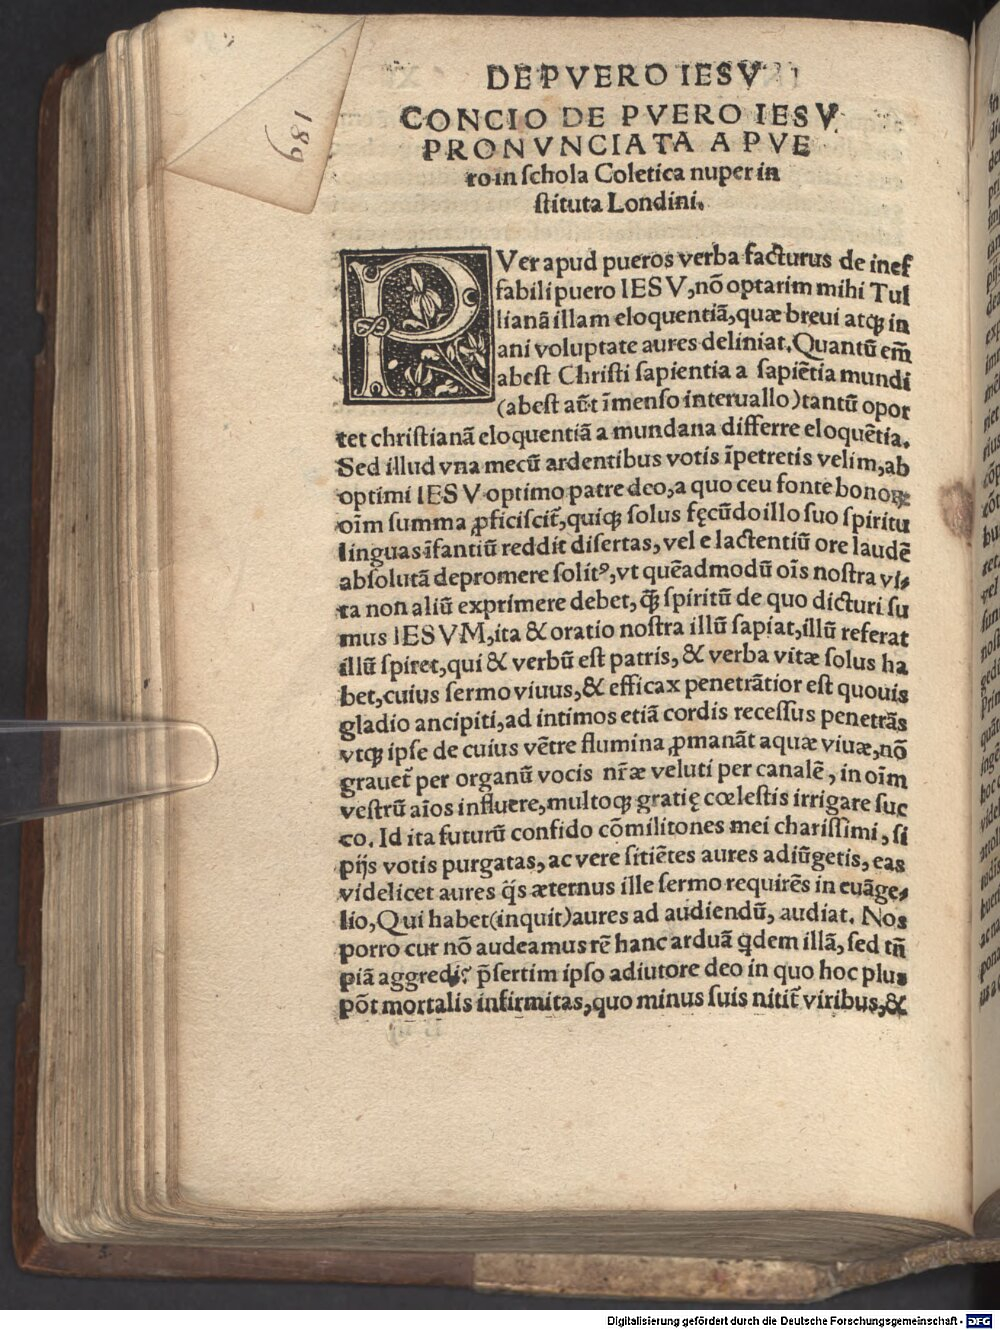 189
DE PVERO IESV
CONCIO DE PVERO IESV
PRONVNCIATA A PVE
ro in ſchola Coletica nuper in
ſtituta Londini.
PVer apud pueros verba facturus de inef
fabili puero IESV, nõ optarim mihi Tul
lianã illam eloquentiã, quæ breui atqꝫ in
ani voluptate aures deliniat. Quantũ em̃
abeſt Chriſti ſapientia a ſapiẽtia mundi
(abeſt aũt ĩmenſo interuallo) tantũ opor
tet chriſtianã eloquentiã a mundana differre eloquẽtia.
Sed illud vna mecũ ardentibus votis ĩpetretis velim, ab
optimi IESV optimo patre deo, a quo ceu fonte bonoꝝ
oĩm ſumma ꝓficiſcit̃, quiqꝫ ſolus fęcũdo illo ſuo ſpiritu
linguas ĩfantiũ reddit diſertas, vel e lactentiũ ore laudẽ
abſolutã depromere ſolitꝰ, vt quẽadmodũ oĩs noſtra vi⸗
ta non aliũ exprimere debet, q̃ꝫ ſpiritũ de quo dicturi ſu
mus IESVM, ita & oratio noſtra illũ ſapiat, illũ referat
illũ ſpiret, qui & verbũ eſt patris, & verba vitæ ſolus ha
bet, cuius ſermo viuus, & efficax penetrãtior eſt quouis
gladio ancipiti, ad intimos etiã cordis receſſus penetrãs
vtqꝫ ipſe de cuius vẽtre flumina ꝓmanãt aquæ viuæ, nõ
grauet̃ per organũ vocis nr̃æ veluti per canalẽ, in oĩm
veſtrũ aĩos influere, multoqꝫ gratię cœleſtis irrigare ſuc
co. Id ita futurũ confido cõmilitones mei chariſſimi, ſi
pijs votis purgatas, ac vere ſitiẽtes aures adiũgetis, eas
videlicet aures q̃s æternus ille ſermo requirẽs in euãge⸗
lio, Qui habet (inquit) aures ad audiendũ, audiat. Nos
porro cur nõ audeamus rẽ hanc arduã qdem illã, ſed tñ
piã aggredi? p̃ſertim ipſo adiutore deo in quo hoc plus
põt mortalis infirmitas, quo minus ſuis nitit̃ viribus, &
Digitalisierung gefördert durch die Deutsche Forschungsgemeinschaft - DFG